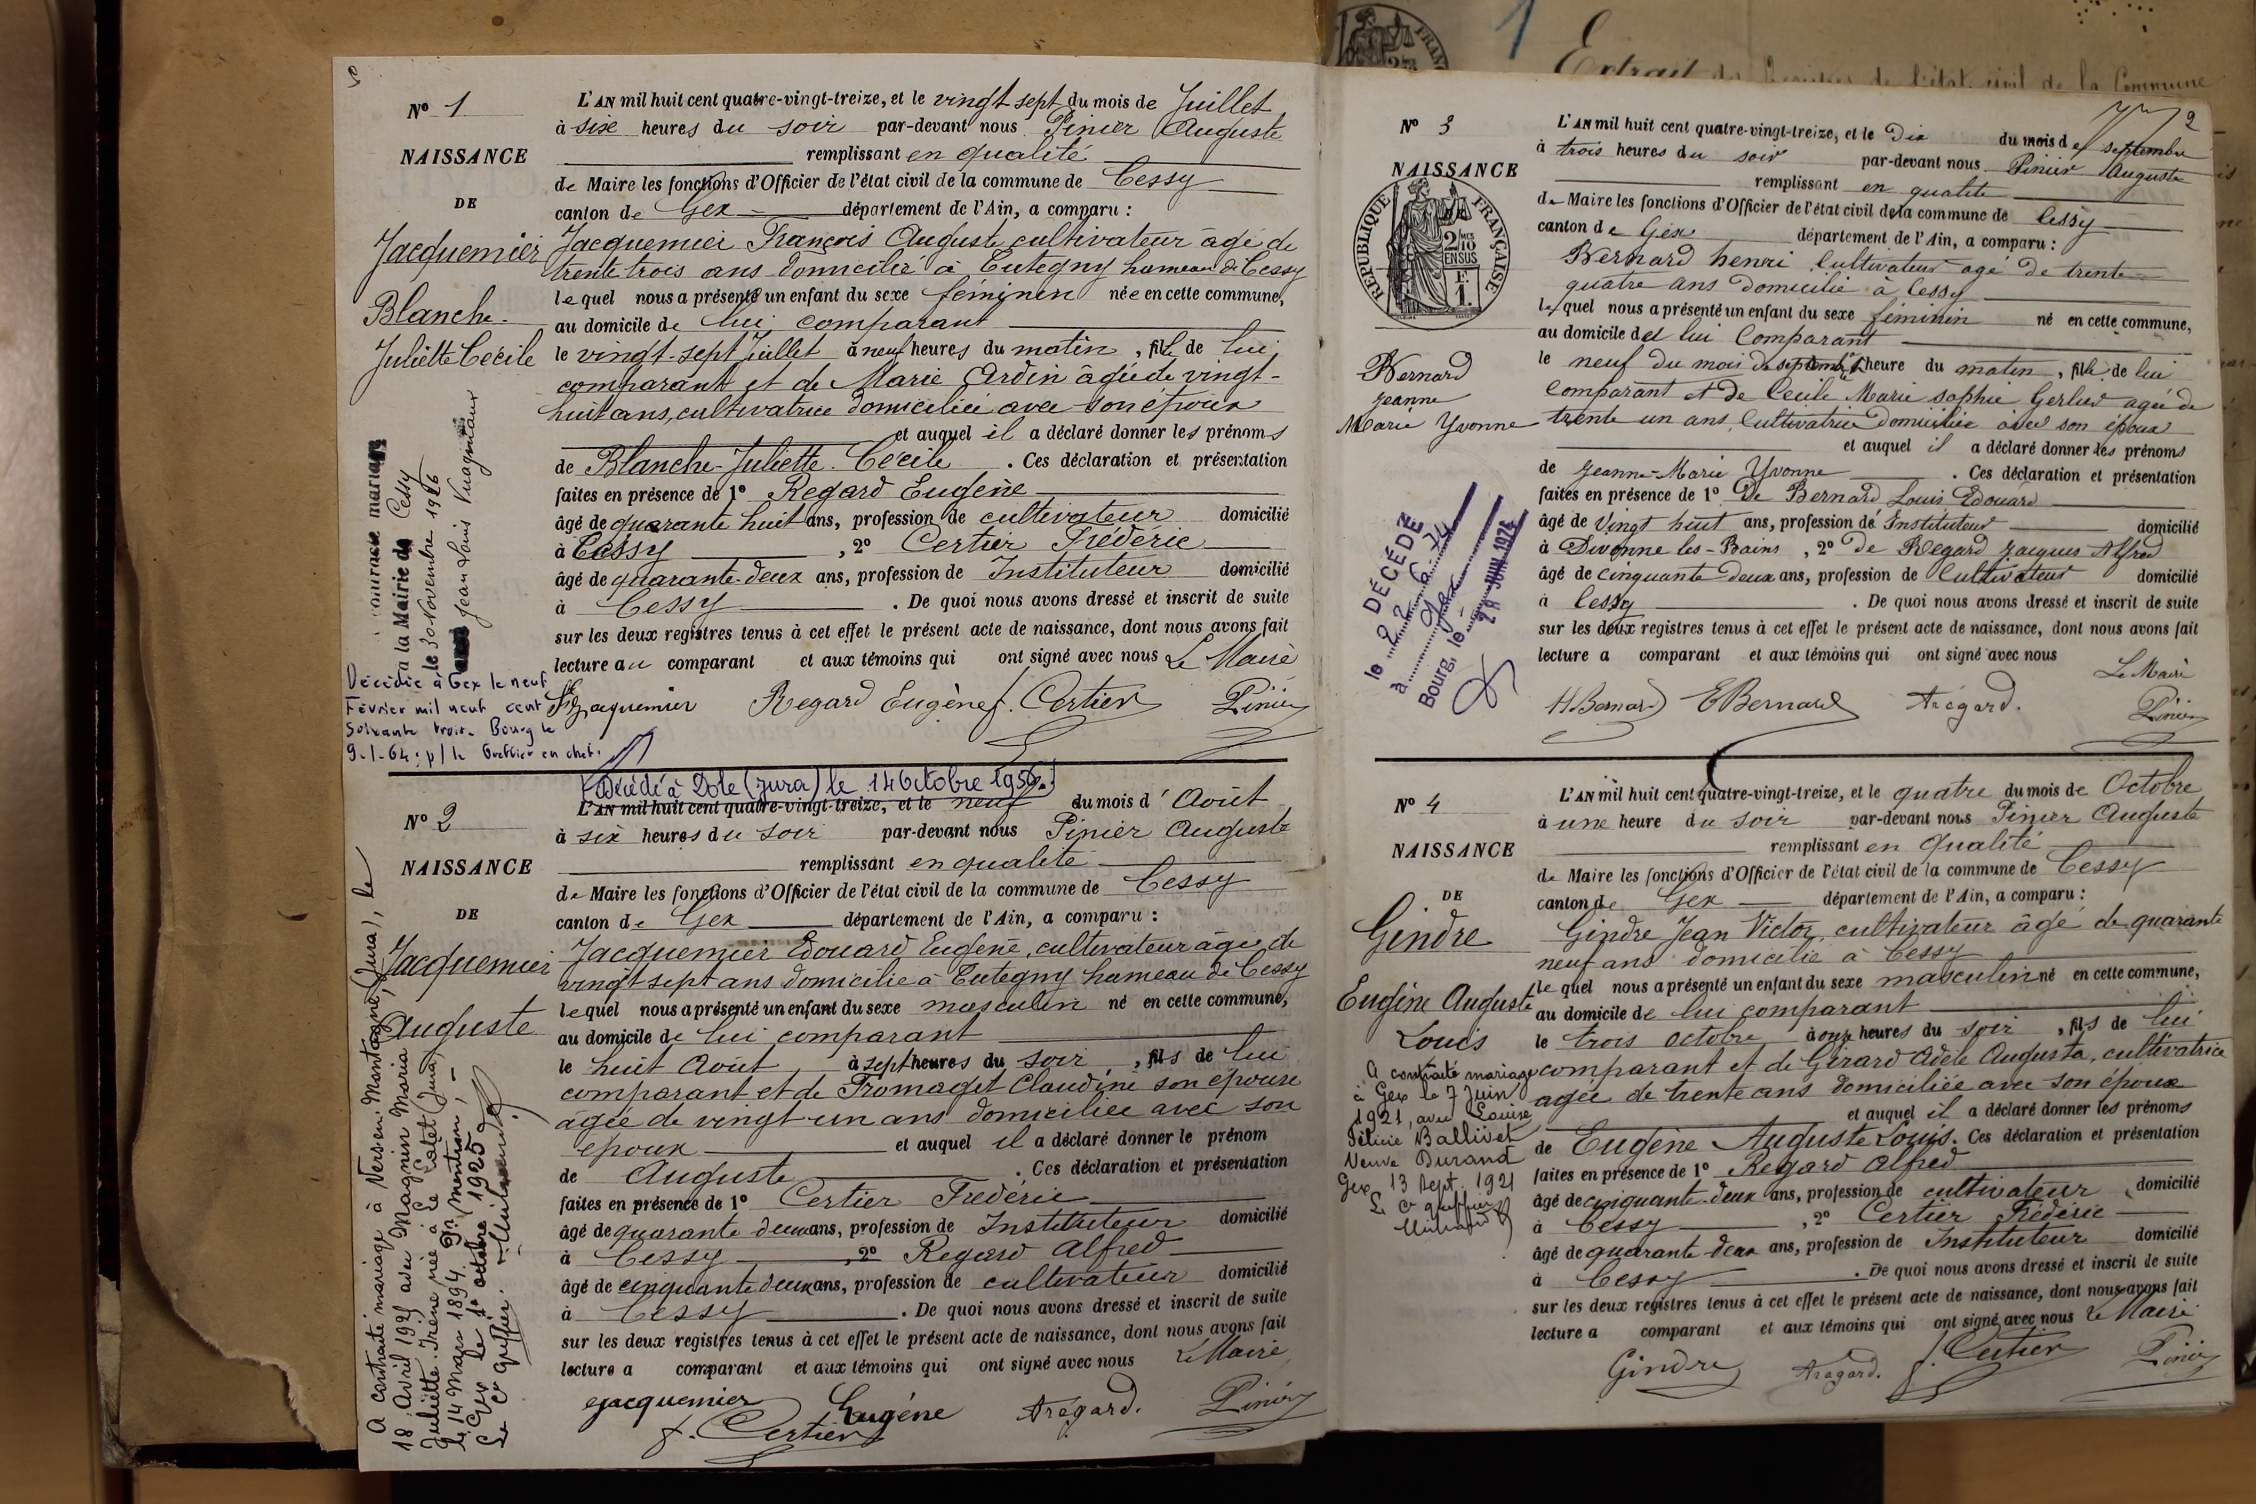 N° 1
NAISSANCE
DE
Jacquemier
Blanche
Juliette Cécile
L'AN mil huit cent quatre-vingt-treize, et le vingt sept du mois de Juillet
à six heures du soir par-devant nous Pinier Auguste
remplissant en qualité
de Maire les fonctions d'Officier de l'état civil de la commune de Cessy
canton de Gex département de l'Ain, a comparu :
Jacquemier François Auguste cultivateur âgé de
trente trois ans domicilié à Tutegny hameau de Cessy
lequel nous a présenté un enfant du sexe féminin née en cette commune,
au domicile de lui comparant
le vingt-sept Juillet à neuf heures du matin, fille de lui
comparant et de Marie Ardin âgée de vingt-
huit ans, cultivatrice domiciliée avec son époux
et auquel il a déclaré donner les prénoms
de Blanche-Juliette Cécile. Ces déclaration et présentation
faites en présence de 1° Regard Eugène
âgé de quarante huit ans, profession de cultivateur domicilié
à Cessy, 2° Certier Frédéric
âgé de quarante-deux ans, profession de Instituteur domicilié
à Cessy. De quoi nous avons dressé et inscrit de suite
sur les deux registres tenus à cet effet le présent acte de naissance, dont nous avons fait
lecture au comparant et aux témoins qui ont signé avec nous Le Maire
Jacquemier Regard Eugène f. Certier Pinier
contracté mariage
à la Mairie de Cessy
le 30 Novembre 1926
Jean Louis Vuagniaux
Décédée à Gex le neuf
Février mil neuf cent
soixante trois. Bourg le
9-1-64 : p/ le Greffier en chef.
(Décédé à Dole (Jura) le 14 Octobre 1956.)
N° 2
NAISSANCE
DE
Jacquemier
Auguste
L'AN mil huit cent quatre-vingt-treize, et le neuf du mois d'Août
à six heures du soir par-devant nous Pinier Auguste
remplissant en qualité
de Maire les fonctions d'Officier de l'état civil de la commune de Cessy
canton de Gex département de l'Ain, a comparu :
Jacquemier Edouard Eugène, cultivateur âgé de
vingt sept ans domicilié à Tutegny hameau de Cessy
lequel nous a présenté un enfant du sexe masculin né en cette commune,
au domicile de lui comparant
le huit Août à sept heures du soir, fils de lui
comparant et de Fromaget Claudine son épouse
âgée de vingt-un ans domiciliée avec son
époux et auquel il a déclaré donner le prénom
de Auguste. Ces déclaration et présentation
faites en présence de 1° Certier Frédéric
âgé de quarante deux ans, profession de Instituteur domicilié
à Cessy, 2° Regard Alfred
âgé de cinquante deux ans, profession de cultivateur domicilié
à Cessy. De quoi nous avons dressé et inscrit de suite
sur les deux registres tenus à cet effet le présent acte de naissance, dont nous avons fait
lecture a comparant et aux témoins qui ont signé avec nous Le Maire
ejacquemier Eugène A regard. Pinier
f. Certier
A contracté mariage à Vers-en-Montagne, (Jura), le
18 Avril 1925 avec Magnin Maria
Juliette Irène née à Le Latet (Jura)
le 14 Mars 1894.
Gex le 1er octobre 1925
Le Cr greffier.
2
N° 3
NAISSANCE
RÉPUBLIQUE FRANÇAISE
2/10 MES
EN SUS
F.
1.
Bernard
Jeanne
Marie Yvonne
L'AN mil huit cent quatre-vingt-treize, et le Dix du mois de septembre
à trois heures du soir par-devant nous Pinier Auguste
remplissant en qualité
de Maire les fonctions d'Officier de l'état civil de la commune de Cessy
canton de Gex département de l'Ain, a comparu :
Bernard henri Cultivateur agé de trente
quatre ans domicilié à Cessy
lequel nous a présenté un enfant du sexe féminin né en cette commune,
au domicile de lui Comparant
le neuf du mois de septembre heure du matin, fille de lui
Comparant et de Cecile Marie sophie Gerlier agée de
trente un ans, Cultivatrice Domiciliée avec son époux
et auquel il a déclaré donner les prénoms
de Jeanne-Marie Yvonne. Ces déclaration et présentation
faites en présence de 1° De Bernard Louis Edouard
âgé de Vingt huit ans, profession de Instituteur domicilié
à Divonne les-Bains, 2° de Regard Jacques Alfred
âgé de cinquante Deux ans, profession de Cultivateur domicilié
à Cessy. De quoi nous avons dressé et inscrit de suite
sur les deux registres tenus à cet effet le présent acte de naissance, dont nous avons fait
lecture a comparant et aux témoins qui ont signé avec nous
Le Maire
H. Bernard E Bernard A regard. Pinier
DÉCÉDÉ
le 22 6 74
à Gex
Bourg, le 28 JUIN 1974
N° 4
NAISSANCE
DE
Gindre
Eugène Auguste
Louis
L'AN mil huit cent quatre-vingt-treize, et le quatre du mois de Octobre
à une heure du soir par-devant nous Pinier Auguste
remplissant en qualité
de Maire les fonctions d'Officier de l'état civil de la commune de Cessy
canton de Gex département de l'Ain, a comparu :
Gindre Jean Victor, cultivateur âgé de quarante
neuf ans domicilié à Cessy
lequel nous a présenté un enfant du sexe masculin né en cette commune,
au domicile de lui comparant
le trois octobre à onze heures du soir, fils de lui
comparant et de Girard Adèle Augusta, cultivatrice
agée de trente ans domiciliée avec son époux
et auquel il a déclaré donner les prénoms
de Eugène Auguste Louis. Ces déclaration et présentation
faites en présence de 1° Regard Alfred
âgé de cinquante-deux ans, profession de cultivateur domicilié
à Cessy, 2° Certier Frédéric
âgé de quarante deux ans, profession de Instituteur domicilié
à Cessy. De quoi nous avons dressé et inscrit de suite
sur les deux registres tenus à cet effet le présent acte de naissance, dont nous avons fait
lecture a comparant et aux témoins qui ont signé avec nous Le Maire
Gindre A regard. f. Certier Pinier
A contracté mariage
à Gex le 7 Juin
1921, avec Louise
Félicie Ballivet
Veuve Durand
Gex, 13 Sept. 1921
Le Cr greffier
1
Extrait des Registres de l'état civil de la Commune